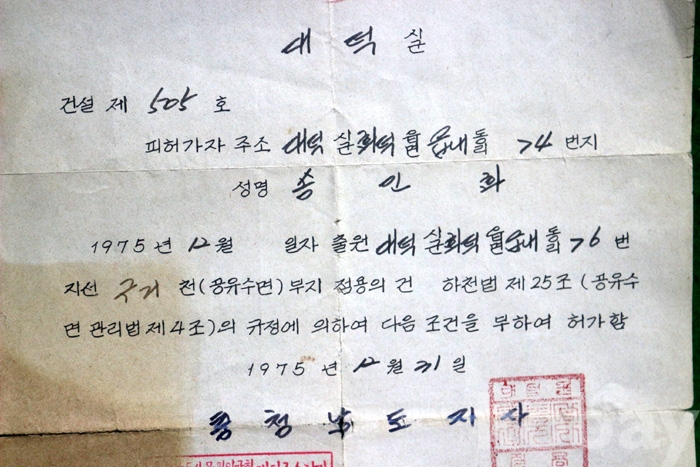 대덕실
건설 제 505 호
피허가자 주조 대덕 실 회덕 읍내 74 번지
성명 송 인 화
1975 년 12 월 일자 출원 대덕 실 회덕 읍내 76 번
지선 구거 천(공유수면) 부지 점용의 건 하천법 제25조 (공유수
면 관리법 제4조)의 규정에 의하여 다음 조건을 부하여 허가함
1975 년 12 월 31 일
충 청 남 도 지 사